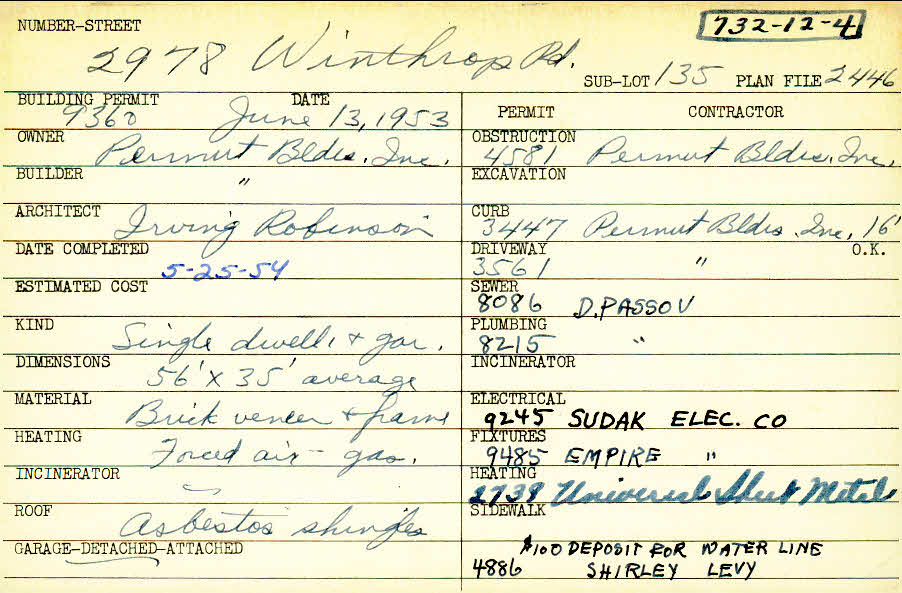 NUMBER-STREET 732-12-4
2978 Winthrop Rd.
SUB-LOT 135 PLAN FILE 2446
BUILDING PERMIT DATE
9360 June 13, 1953
OWNER Permut Bldrs. Inc.
BUILDER "
ARCHITECT Irving Robinson
DATE COMPLETED
5-25-54
ESTIMATED COST
KIND Single dwell. + gar.
DIMENSIONS 56' X 35' average
MATERIAL Brick veneer + frame
HEATING Forced air - gas.
INCINERATOR
ROOF Asbestos shingles
GARAGE-DETACHED-ATTACHED
PERMIT CONTRACTOR
OBSTRUCTION
4581 Permut Bldrs. Inc.
EXCAVATION
CURB
3447 Permut Bldrs. Inc, 16'
DRIVEWAY O.K.
3561 "
SEWER
8086 D. PASSOV
PLUMBING
8215 "
INCINERATOR
ELECTRICAL
9245 SUDAK ELEC. CO
FIXTURES
9485 EMPIRE "
HEATING
2739 Universal Sheet Metal
SIDEWALK
$100 DEPOSIT FOR WATER LINE
4886 SHIRLEY LEVY